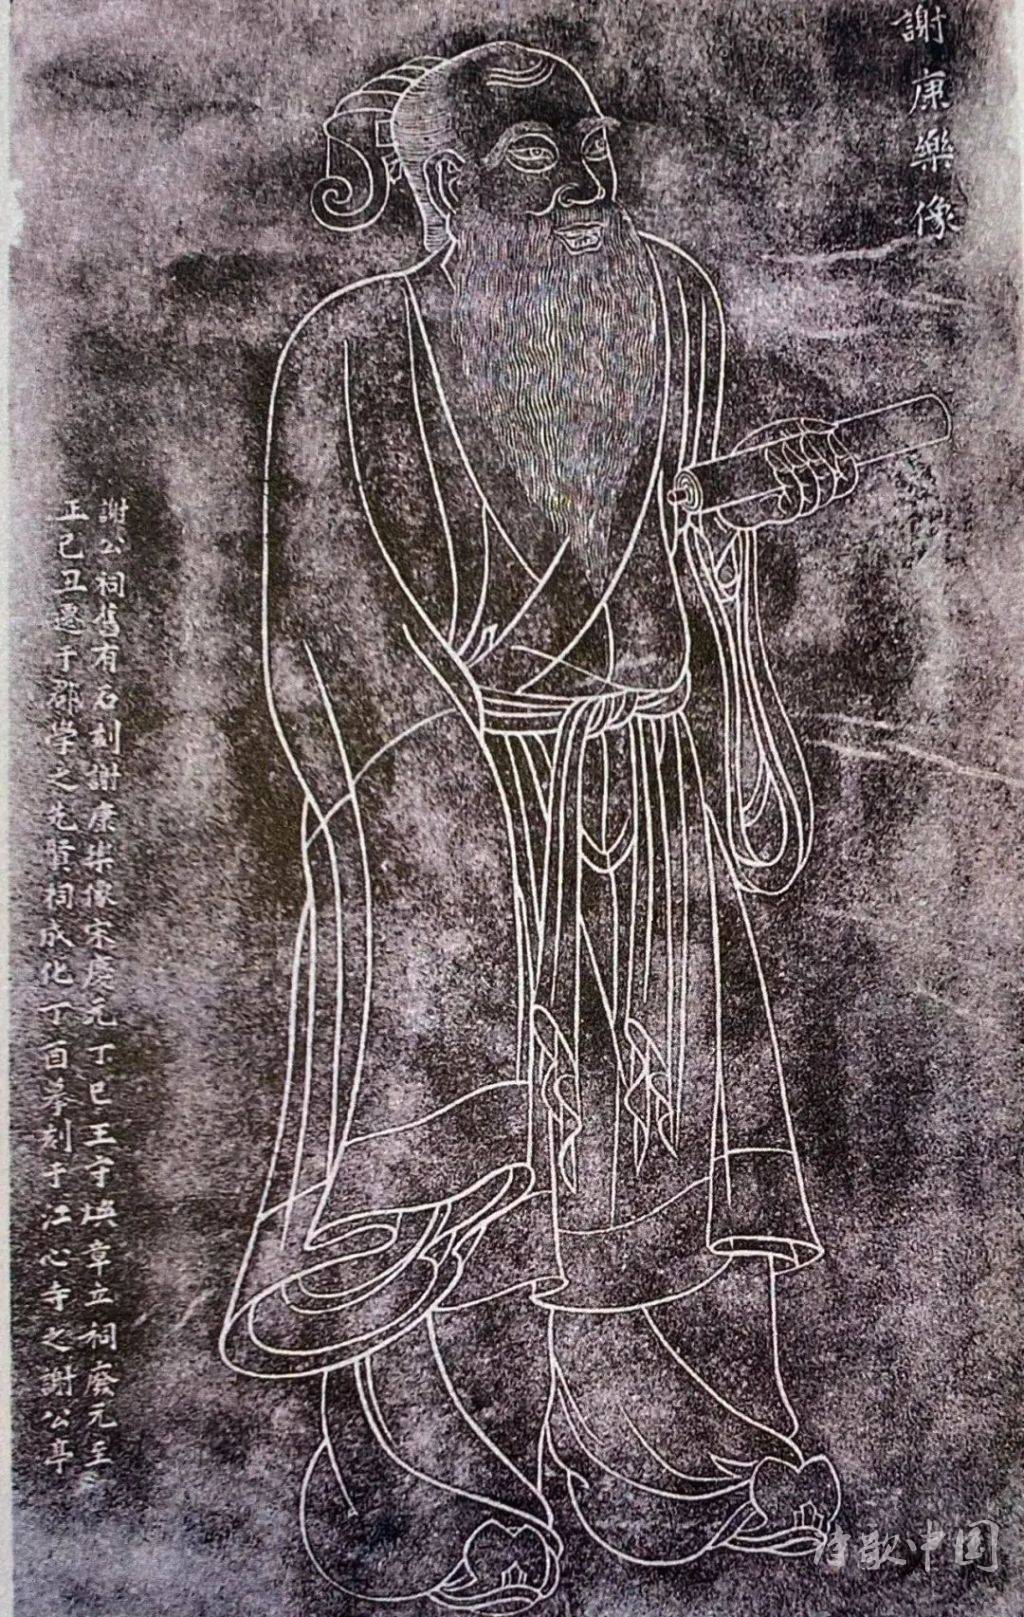 謝康樂像
謝公祠舊有石刻謝康樂像宋慶元丁巳王守煥章立祠廢元至
正己丑遷于郡學之先賢祠成化丁酉摹刻于江心寺之謝公亭
诗歌中国